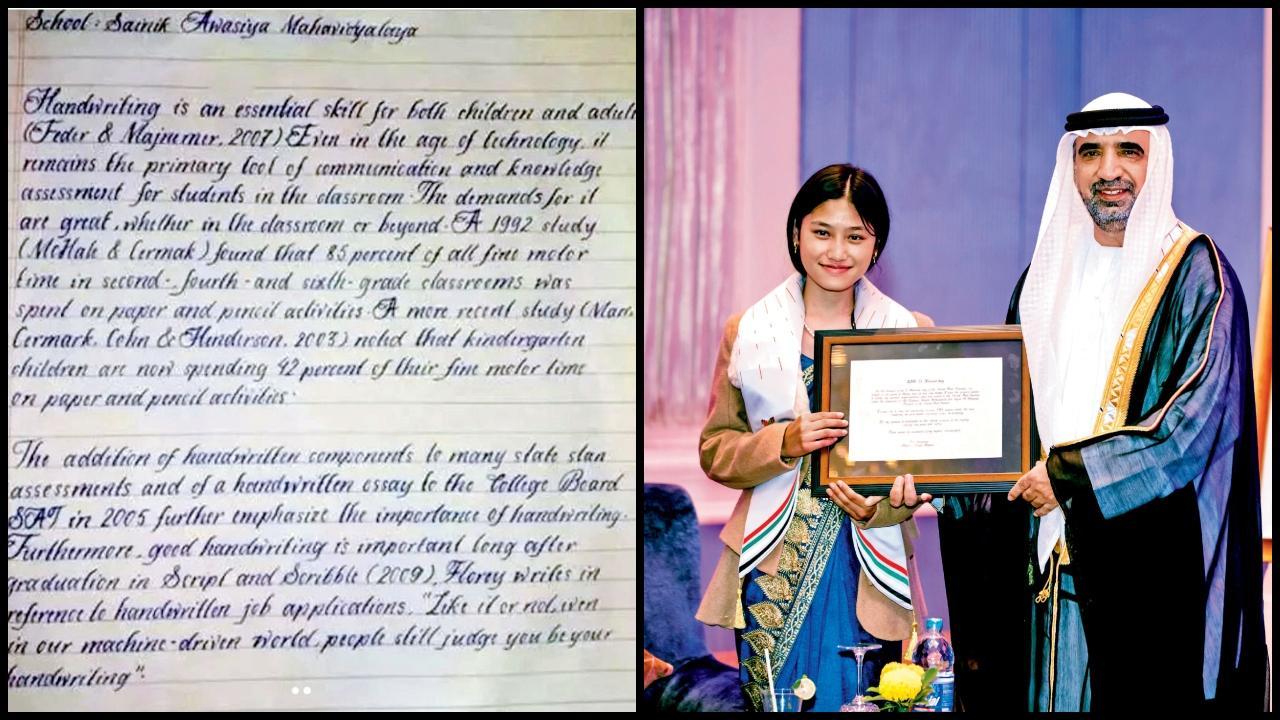 School: Sainik Awasiya Mahavidyalaya
Handwriting is an essential skill for both children and adult
(Feder & Majnemer, 2007) Even in the age of technology, it
remains the primary tool of communication and knowledge
assessment for students in the classroom. The demands for it
are great, whether in the classroom or beyond. A 1992 study
(McHale & Cermak) found that 85 percent of all fine motor
time in second-, fourth-and sixth-grade classrooms was
spent on paper and pencil activities. A more recent study (Marr,
Cermark, Cohn & Henderson, 2003) noted that kindergarten
children are now spending 42 percent of their fine motor time
on paper and pencil activities.
The addition of handwritten components to many state stan
assessments and of a handwritten essay to the College Board
SAT in 2005 further emphasize the importance of handwriting.
Furthermore, good handwriting is important long after
graduation in Script and Scribble (2009), Florey writes in
reference to handwritten job applications, "Like it or not, even
in our machine-driven world, people still judge you be your
handwriting".